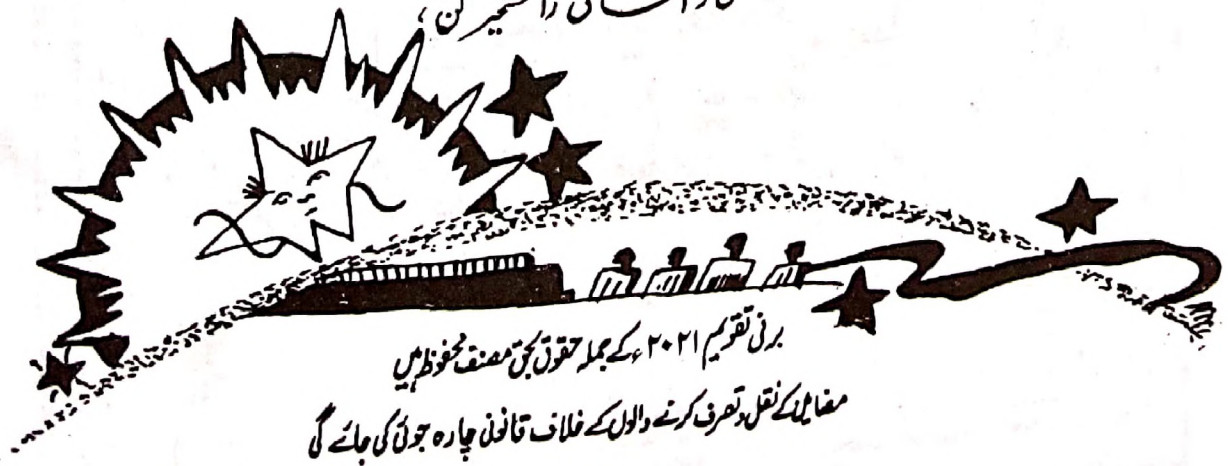 را تسخیر کن ،
برنی تقویم ۲۰۲۱ء کے جملہ حقوق بحق مصنف محفوظ ہیں
مضامین کے نقل و تصرف کرنے والوں کے خلاف قانونی چارہ جوئی کی جائے گی